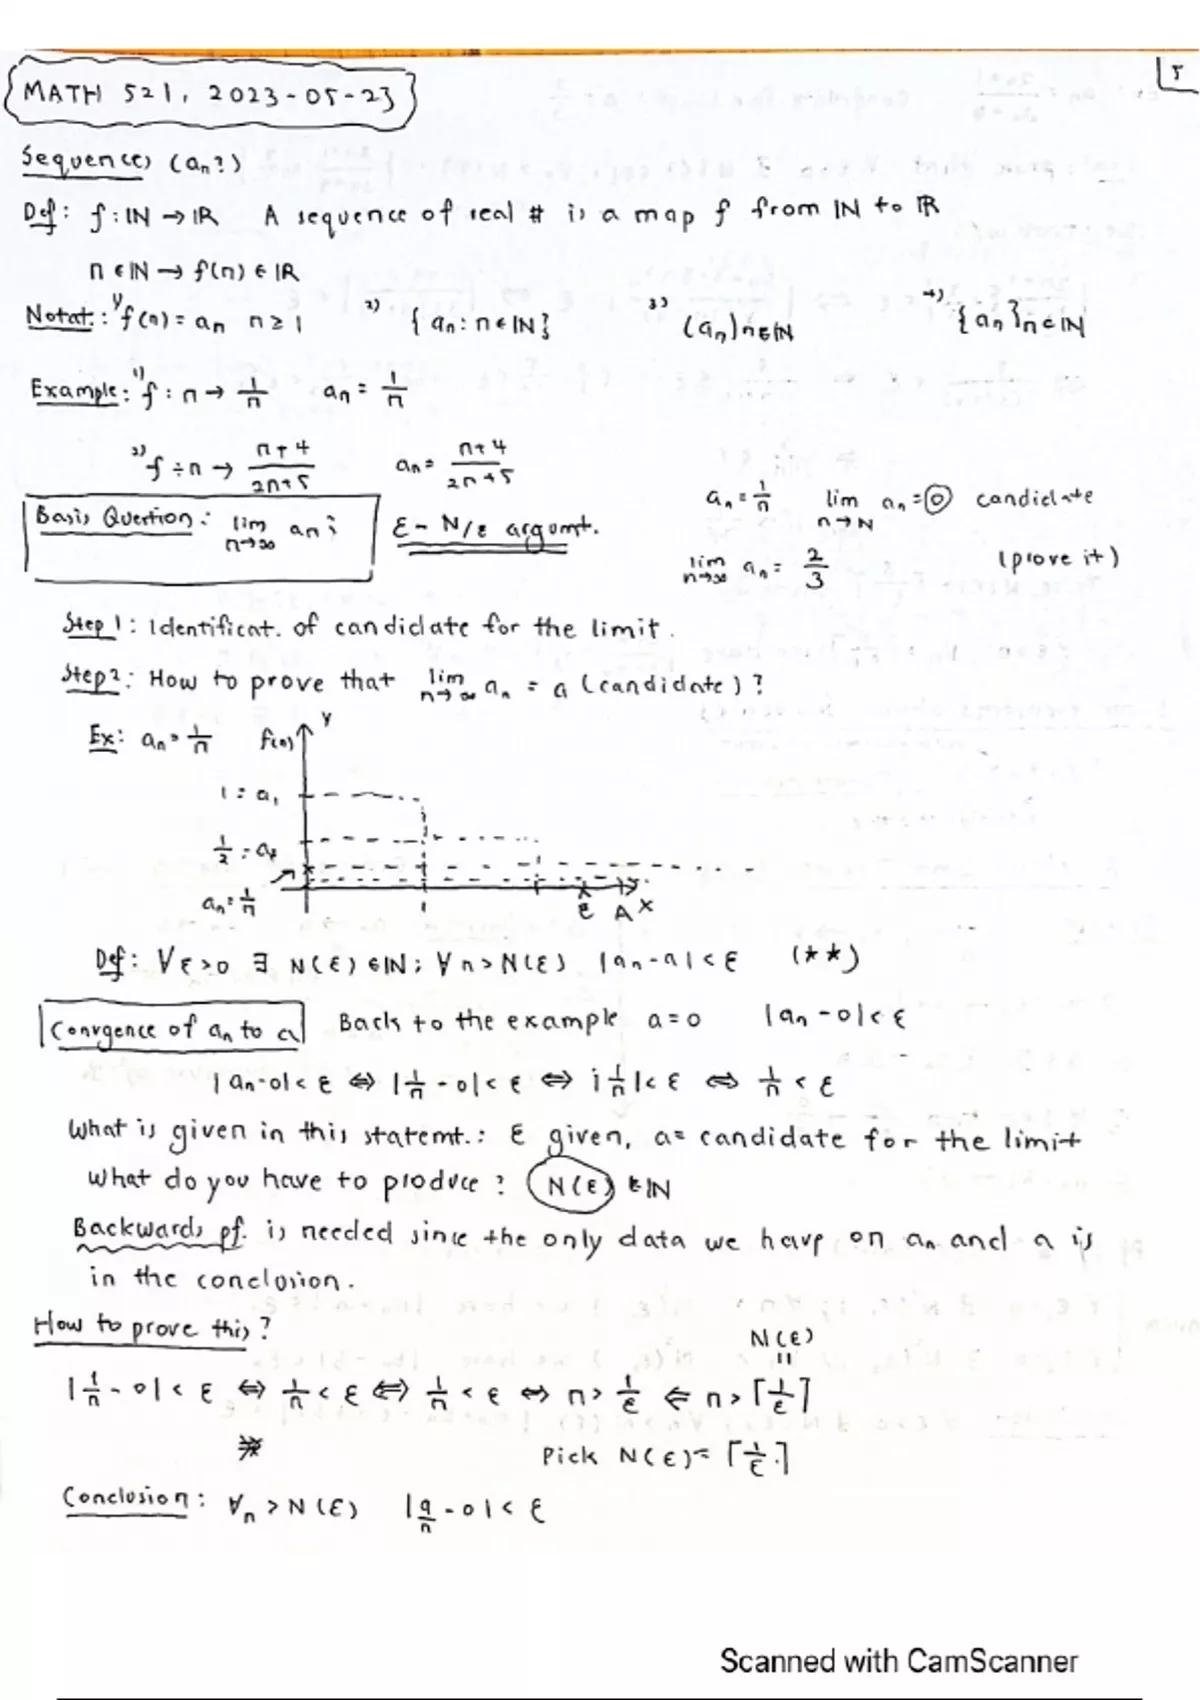 MATH 521, 2023-05-23
5
Sequences (an?)
Def: f: ℕ → ℝ A sequence of real # is a map f from ℕ to ℝ
n ∈ ℕ → f(n) ∈ ℝ
Notat.: 1) f(n) = an n ≥ 1 2) { an : n ∈ ℕ } 3) (an)n∈ℕ 4) { an }n∈ℕ
Example: 1) f : n → 1/n an = 1/n
2) f ÷ n → n+4/2n+5 an = n+4/2n+5
an = 1/n lim n→N an = 0 candidate
Basis Question: lim n→∞ an ; ε - N/ε argumt.
lim n→∞ an = 2/3 (prove it)
Step 1: Identificat. of candidate for the limit.
Step 2: How to prove that lim n→∞ an = a (candidate)?
Ex: an = 1/n f(n) y
1 = a1
1/2 = a2
an = 1/n ε A x
Def: ∀ ε > 0 ∃ N(ε) ∈ ℕ ; ∀ n > N(ε) |an - a| < ε (**)
Convgence of an to a Back to the example a = 0 |an - 0| < ε
|an - 0| < ε ⇔ |1/n - 0| < ε ⇔ |1/n| < ε ⇔ 1/n < ε
What is given in this statemt.: ε given, a = candidate for the limit
what do you have to produce? N(ε) ∈ ℕ
Backwards pf. is needed since the only data we have on an and a is
in the conclusion.
How to prove this?
N(ε)
=
|1/n - 0| < ε ⇔ 1/n < ε ⇔ 1/n < ε ⇔ n > 1/ε ⇐ n > ⌈1/ε⌉
Pick N(ε) = ⌈1/ε.⌉
Conclusion: ∀n > N(ε) |a/n - 0| < ε
Scanned with CamScanner